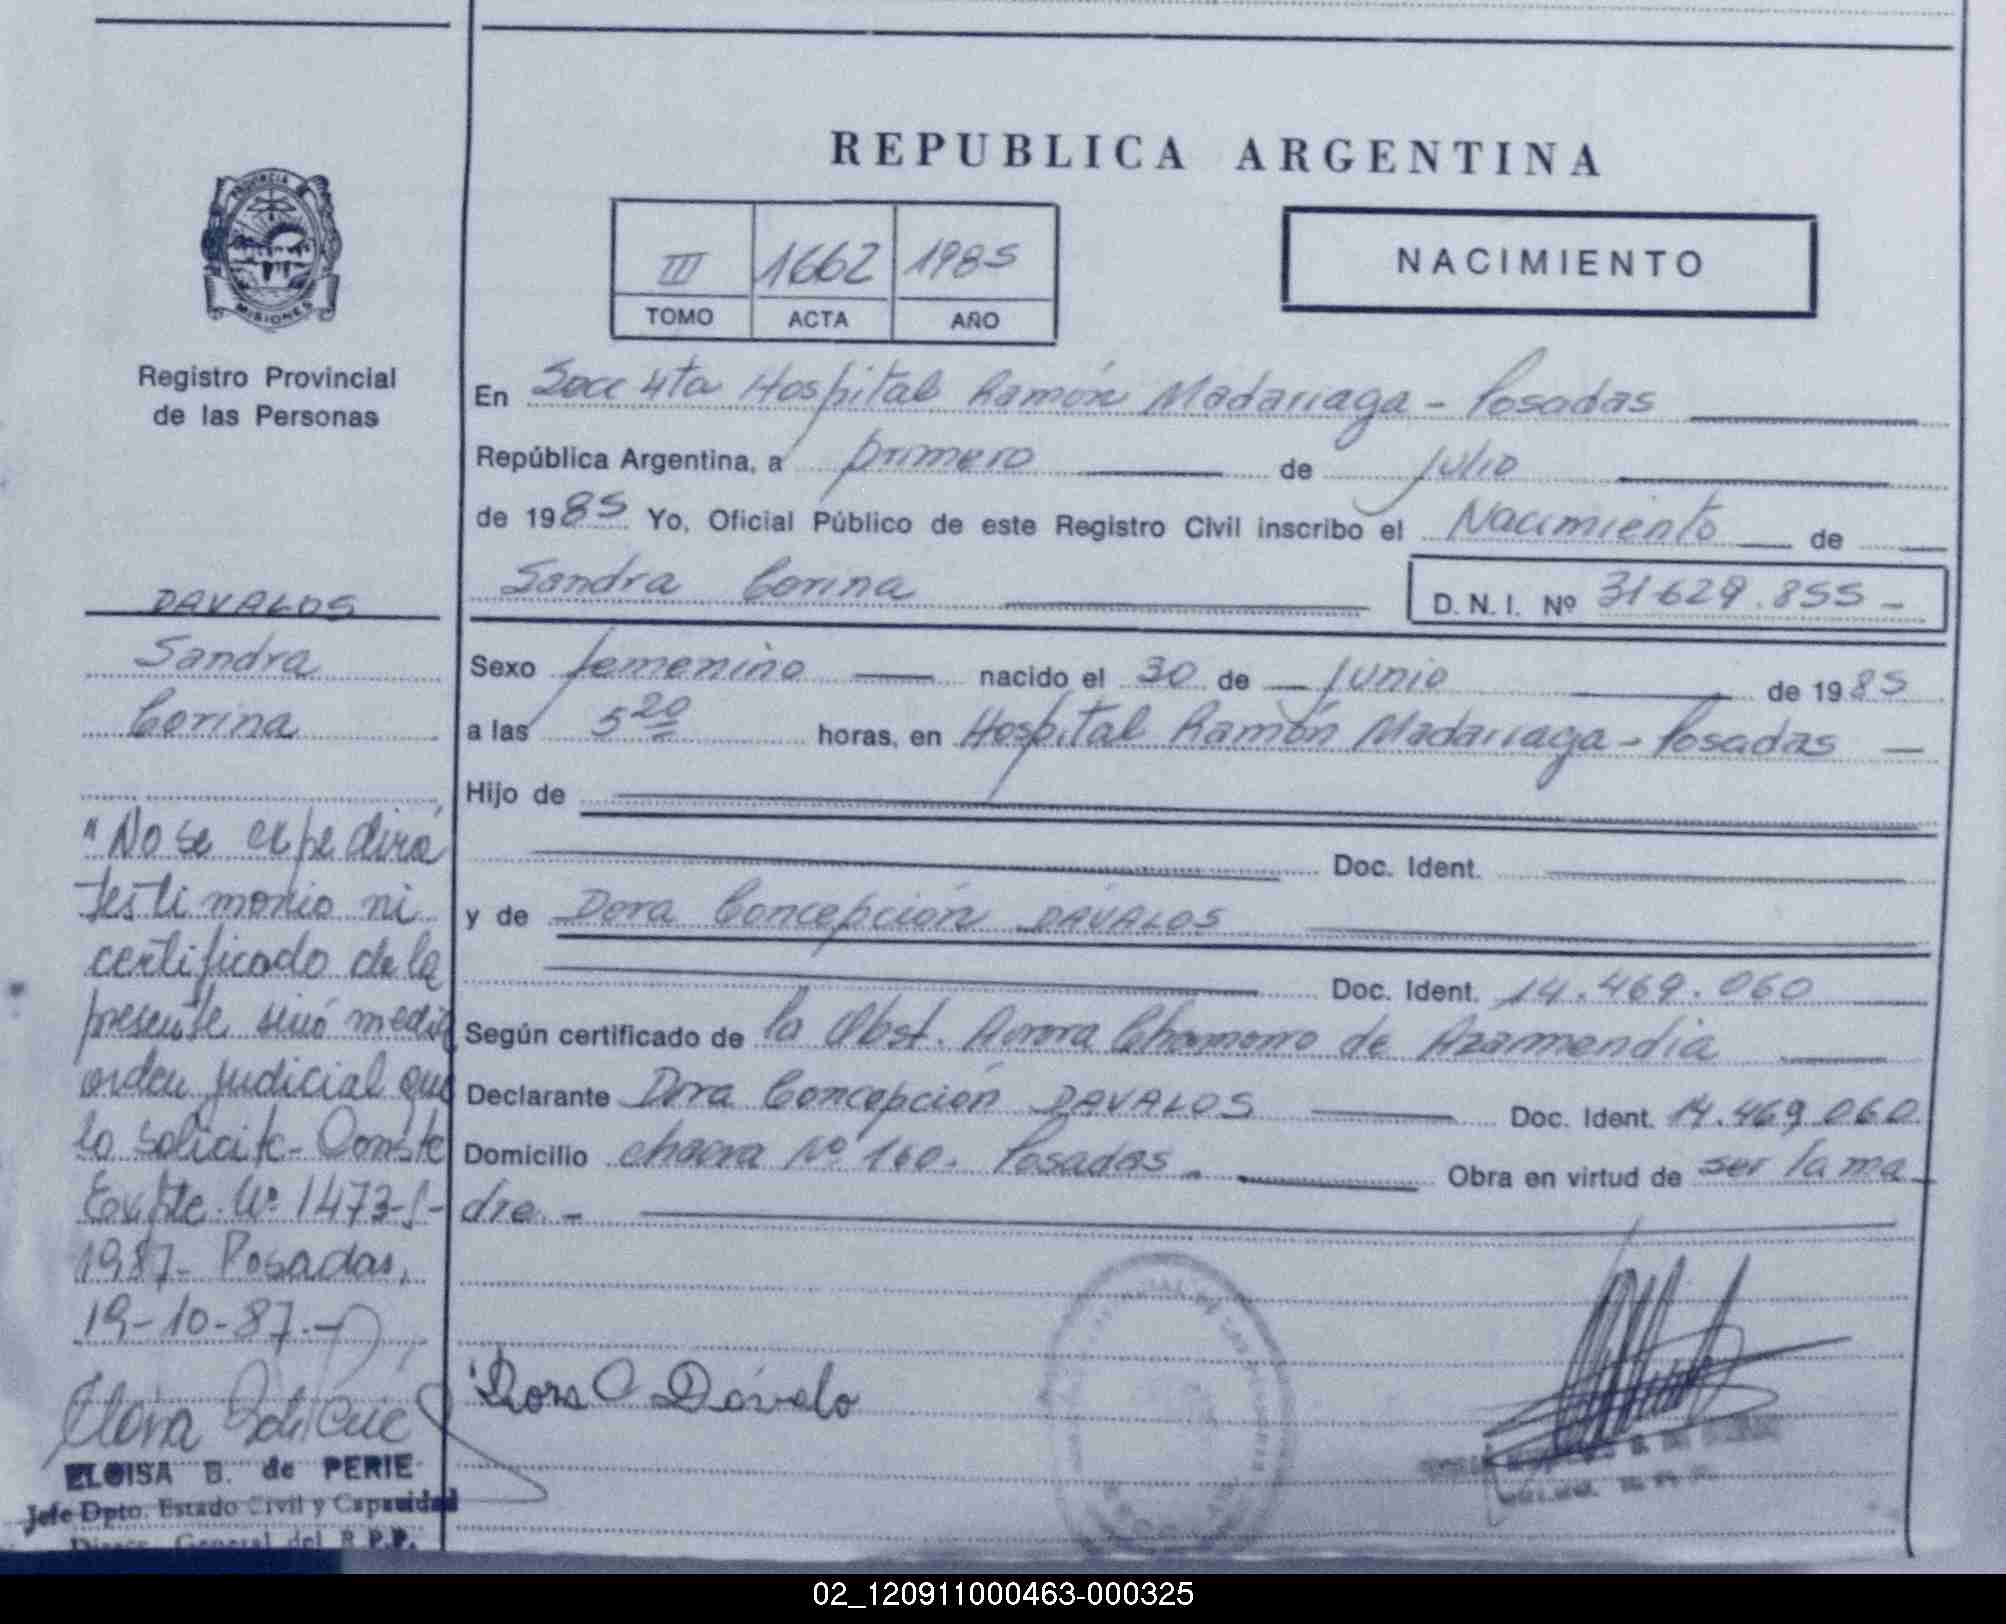 PROVINCIA DE
MISIONES
Registro Provincial
de las Personas
DAVALOS
Sandra
Corina
"No se expedirá
testimonio ni
certificado de la
presente sinó media
orden judicial que
lo solicite - Conste
Expte. Nº 1473-S-
1987- Posadas,
19-10-87.-
ELOISA B. de PERIE
Jefe Dpto. Estado Civil y Capacidad
Direcc. General del R.P.P.
REPUBLICA ARGENTINA
III 1662 1985
TOMO ACTA AÑO
NACIMIENTO
En Secc 4ta Hospital Ramón Madariaga - Posadas
República Argentina, a primero de julio
de 1985 Yo, Oficial Público de este Registro Civil inscribo el Nacimiento de
Sandra Corina D. N. I. Nº 31.629.855 -
Sexo femenino nacido el 30 de junio de 1985
a las 5 20 horas, en Hospital Ramón Madariaga - Posadas
Hijo de
Doc. Ident.
y de Dora Concepción DAVALOS
Doc. Ident. 14.469.060
Según certificado de la Obst. Aurora Chamorro de Azarmendia
Declarante Dora Concepción DAVALOS Doc. Ident. 14.469.060
Domicilio chacra Nº 160. Posadas - Obra en virtud de ser la ma
dre. -
Dora C Dávalo
02_120911000463-000325